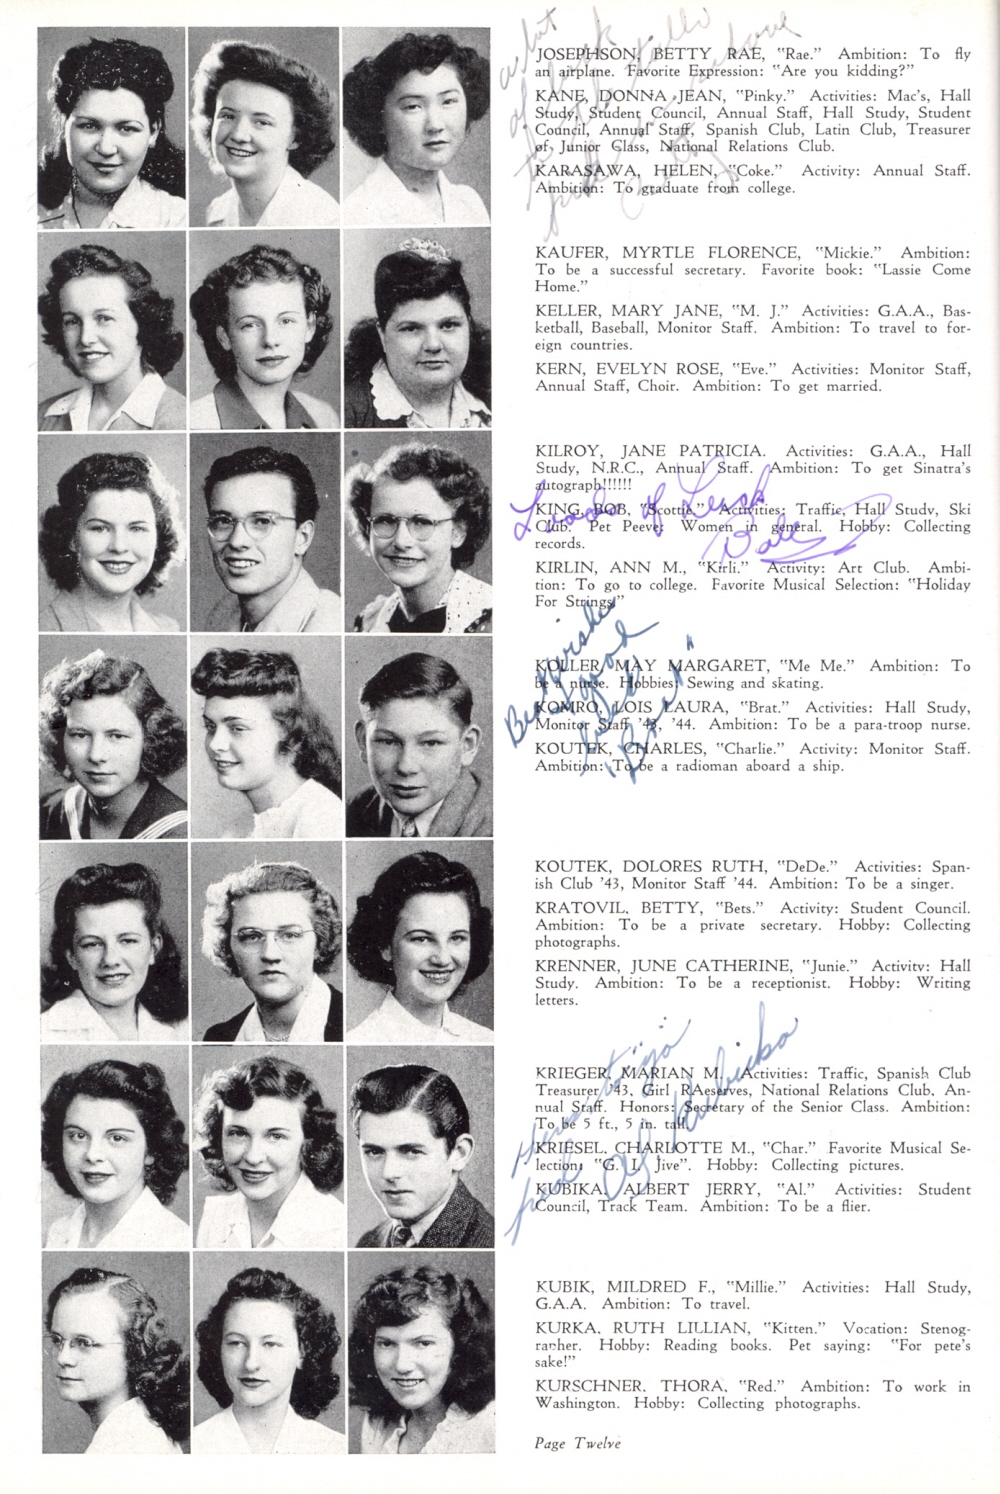 JOSEPHSON, BETTY RAE, "Rae." Ambition: To fly
an airplane. Favorite Expression: "Are you kidding?"
KANE, DONNA JEAN, "Pinky." Activities: Mac's, Hall
Study, Student Council, Annual Staff, Hall Study, Student
Council, Annual Staff, Spanish Club, Latin Club, Treasurer
of Junior Class, National Relations Club.
KARASAWA, HELEN, "Coke." Activity: Annual Staff.
Ambition: To graduate from college.
KAUFER, MYRTLE FLORENCE, "Mickie." Ambition:
To be a successful secretary. Favorite book: "Lassie Come
Home."
KELLER, MARY JANE, "M. J." Activities: G.A.A., Bas-
ketball, Baseball, Monitor Staff. Ambition: To travel to for-
eign countries.
KERN, EVELYN ROSE, "Eve." Activities: Monitor Staff,
Annual Staff, Choir. Ambition: To get married.
KILROY, JANE PATRICIA. Activities: G.A.A., Hall
Study, N.R.C., Annual Staff. Ambition: To get Sinatra's
autograph!!!!!!
KING, BOB, "Scottie." Activities: Traffic, Hall Study, Ski
Club. Pet Peeve: Women in general. Hobby: Collecting
records.
Loads of Luck
KIRLIN, ANN M., "Kirli." Activity: Art Club. Ambi-
tion: To go to college. Favorite Musical Selection: "Holiday
For Strings."
Best Wishes
Good
Luck
"Brat"
KOLLER, MAY MARGARET, "Me Me." Ambition: To
be a nurse. Hobbies: Sewing and skating.
KOMRO, LOIS LAURA, "Brat." Activities: Hall Study,
Monitor Staff '43, '44. Ambition: To be a para-troop nurse.
KOUTEK, CHARLES, "Charlie." Activity: Monitor Staff.
Ambition: To be a radioman aboard a ship.
KOUTEK, DOLORES RUTH, "DeDe." Activities: Span-
ish Club '43, Monitor Staff '44. Ambition: To be a singer.
KRATOVIL, BETTY, "Bets." Activity: Student Council.
Ambition: To be a private secretary. Hobby: Collecting
photographs.
KRENNER, JUNE CATHERINE, "Junie." Activity: Hall
Study. Ambition: To be a receptionist. Hobby: Writing
letters.
KRIEGER, MARIAN M. Activities: Traffic, Spanish Club
Treasurer '43, Girl RAeserves, National Relations Club, An-
nual Staff. Honors: Secretary of the Senior Class. Ambition:
To be 5 ft., 5 in. tall.
KRIESEL, CHARLOTTE M., "Char." Favorite Musical Se-
lection: "G. I. Jive". Hobby: Collecting pictures.
KUBIKA, ALBERT JERRY, "Al." Activities: Student
Council, Track Team. Ambition: To be a flier.
Al Kubicka
KUBIK, MILDRED F., "Millie." Activities: Hall Study,
G.A.A. Ambition: To travel.
KURKA, RUTH LILLIAN, "Kitten." Vocation: Stenog-
rapher. Hobby: Reading books. Pet saying: "For pete's
sake!"
KURSCHNER, THORA, "Red." Ambition: To work in
Washington. Hobby: Collecting photographs.
Page Twelve